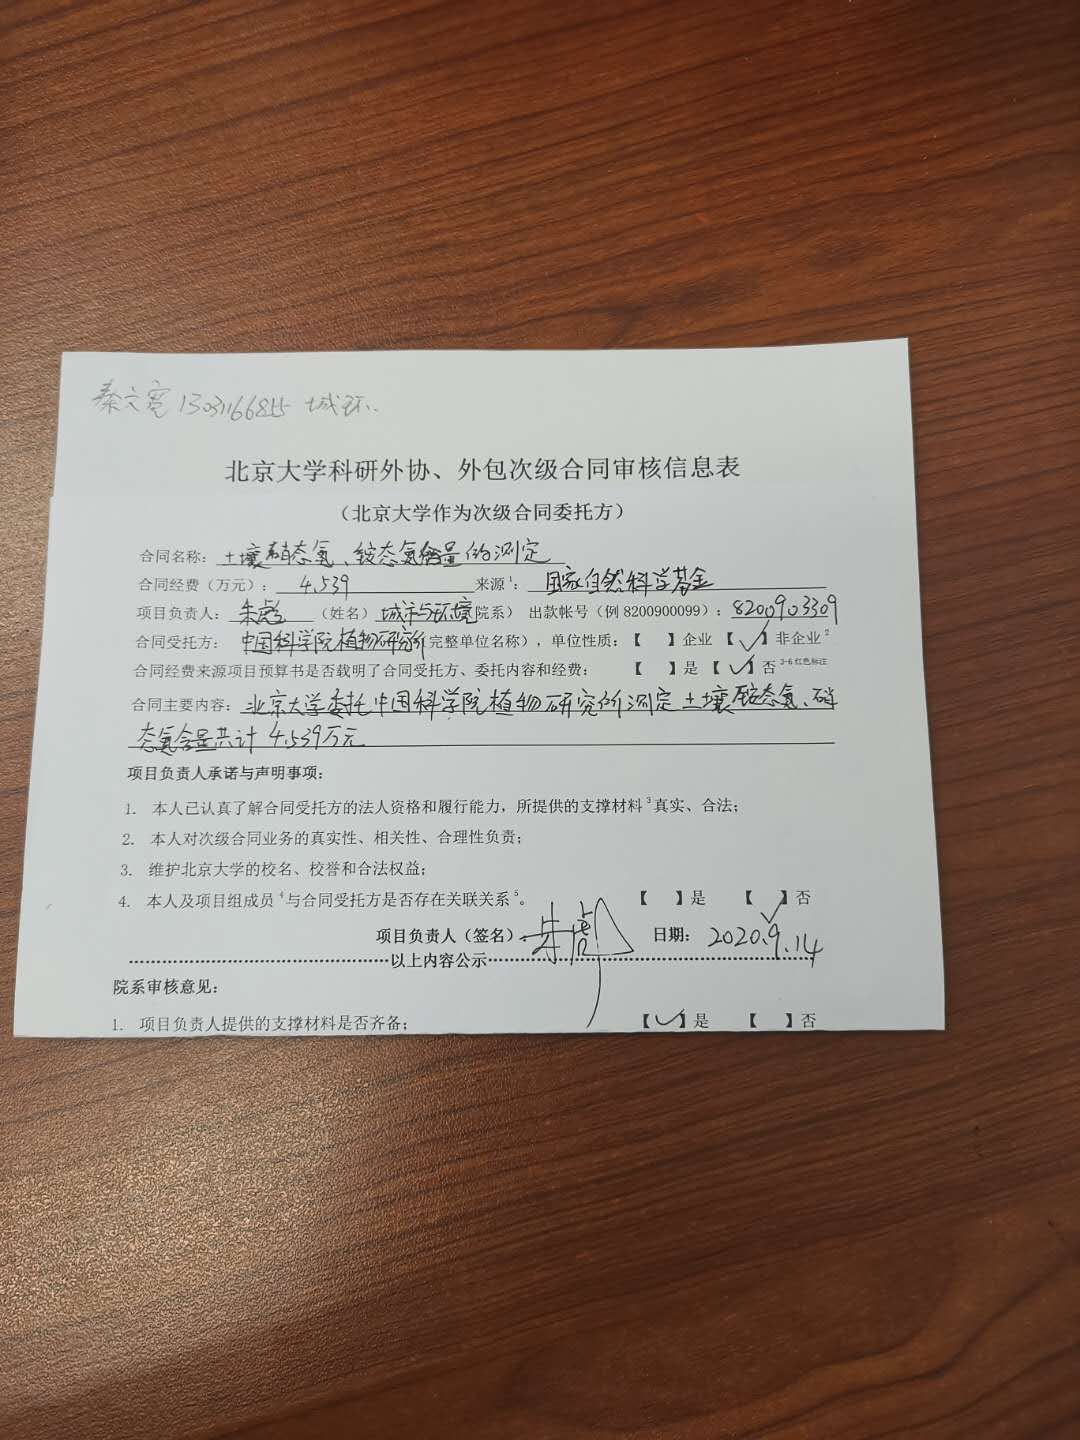 秦文宽 13031166855 城环.
北京大学科研外协、外包次级合同审核信息表
（北京大学作为次级合同委托方）
合同名称: 土壤硝态氮、铵态氮含量的测定
合同经费（万元）: 4.539 来源1: 国家自然科学基金
项目负责人: 朱彪 （姓名） 城市与环境 院系） 出款帐号（例 8200900099）: 8200903309
合同受托方: 中国科学院植物研究所 完整单位名称），单位性质:【 】企业 【✓】非企业2
合同经费来源项目预算书是否载明了合同受托方、委托内容和经费: 【 】是 【✓】否 3-6 红色标注
合同主要内容: 北京大学委托中国科学院植物研究所测定土壤铵态氮、硝
态氮含量共计 4.539万元
项目负责人承诺与声明事项:
1. 本人已认真了解合同受托方的法人资格和履行能力，所提供的支撑材料3真实、合法;
2. 本人对次级合同业务的真实性、相关性、合理性负责;
3. 维护北京大学的校名、校誉和合法权益;
4. 本人及项目组成员4与合同受托方是否存在关联关系5。 【 】是 【✓】否
项目负责人（签名）: 朱彪 日期: 2020.9.14
以上内容公示
院系审核意见:
1. 项目负责人提供的支撑材料是否齐备; 【✓】是 【 】否